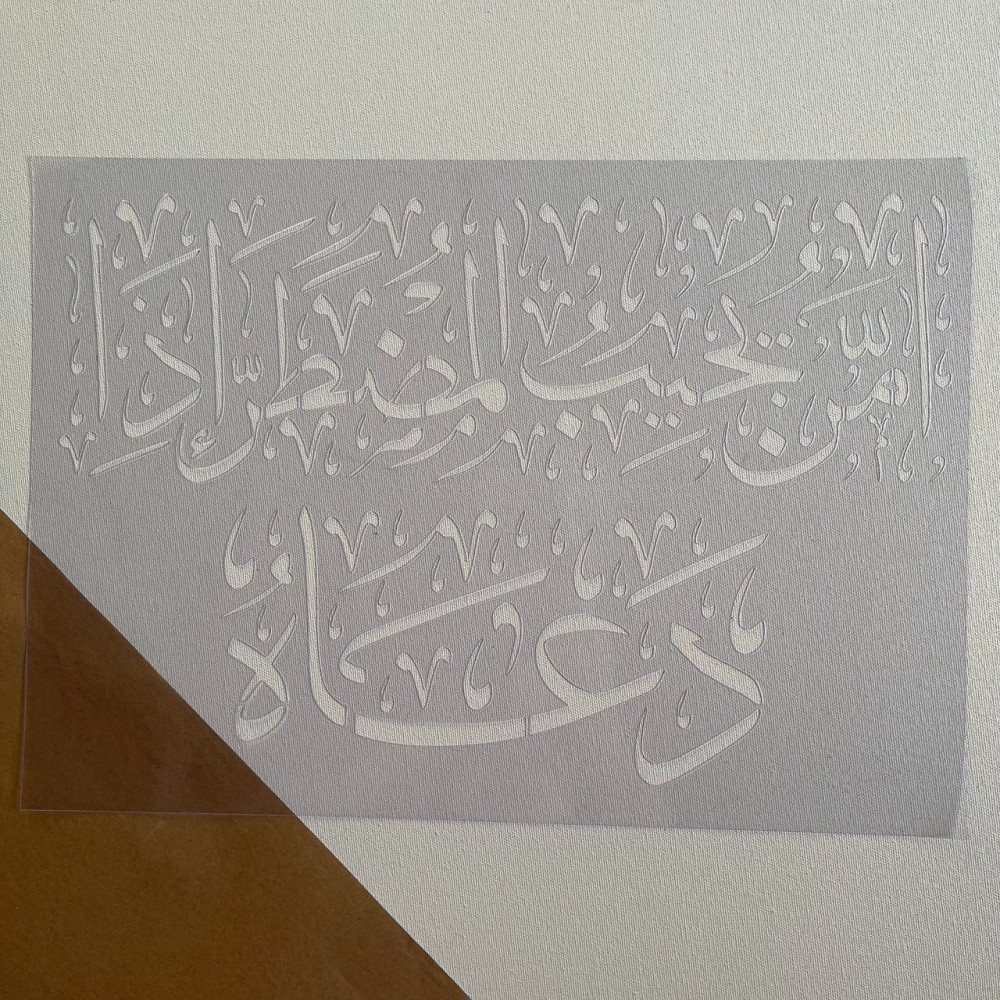 أَمَّنْ يُجِيبُ الْمُضْطَرَّ إِذَا
دَعَاهُ